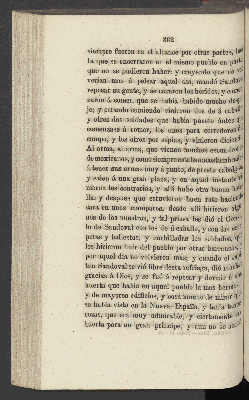 308
siempre fueron en el alcance por otras partes, hasta
que se encerraron en el mismo pueblo en parte
que no se pudieron haber: y creyendo que no
mas á pelear aquel dia, mandó
reposar su gente, y se curaron los heridos, y
á comer, que se habia habido mucho
y estando comiendo vinieron dos de á caballo
y otros dos soldados que habia puesto antes que
comenzase á comer, los unos para corredores del
campo, y los otros por espias, y vinieron diciendo:
Al arma, al arma, que vienen muchos
de mexicanos, y como siempre
á tener sus armas muy á punto, de presto cabalgan
y salen á una gran plaza, y en aquel instante
los contrarios, y allí hubo otra buena
lla: y despues que estuvieron buen rato haciendo
cara en unos mamparos, desde allí hirieron algu-
nos de los nuestros, y tal priesa les dió el
de Sandoval con los de á caballo, y con las esco-
petas y ballestas, y cuchilladas los soldados, que
les hicieron huir del pueblo por otras barrancas, y
por aquel dia no volvieron mas: y cuando el
tan Sandoval se vió libre desta refriega, dió muchas
gracias á Dios, y se fué á reposar y dormir á una
huerta que habia en aquel pueblo la mas hermosa
y de mayores edificios, y cosa mucho de mirar que
se habia visto en la Nueva-España, y
cosas, que era muy admirable, y ciertamente era
huerta para un gran príncipe, y aun no se